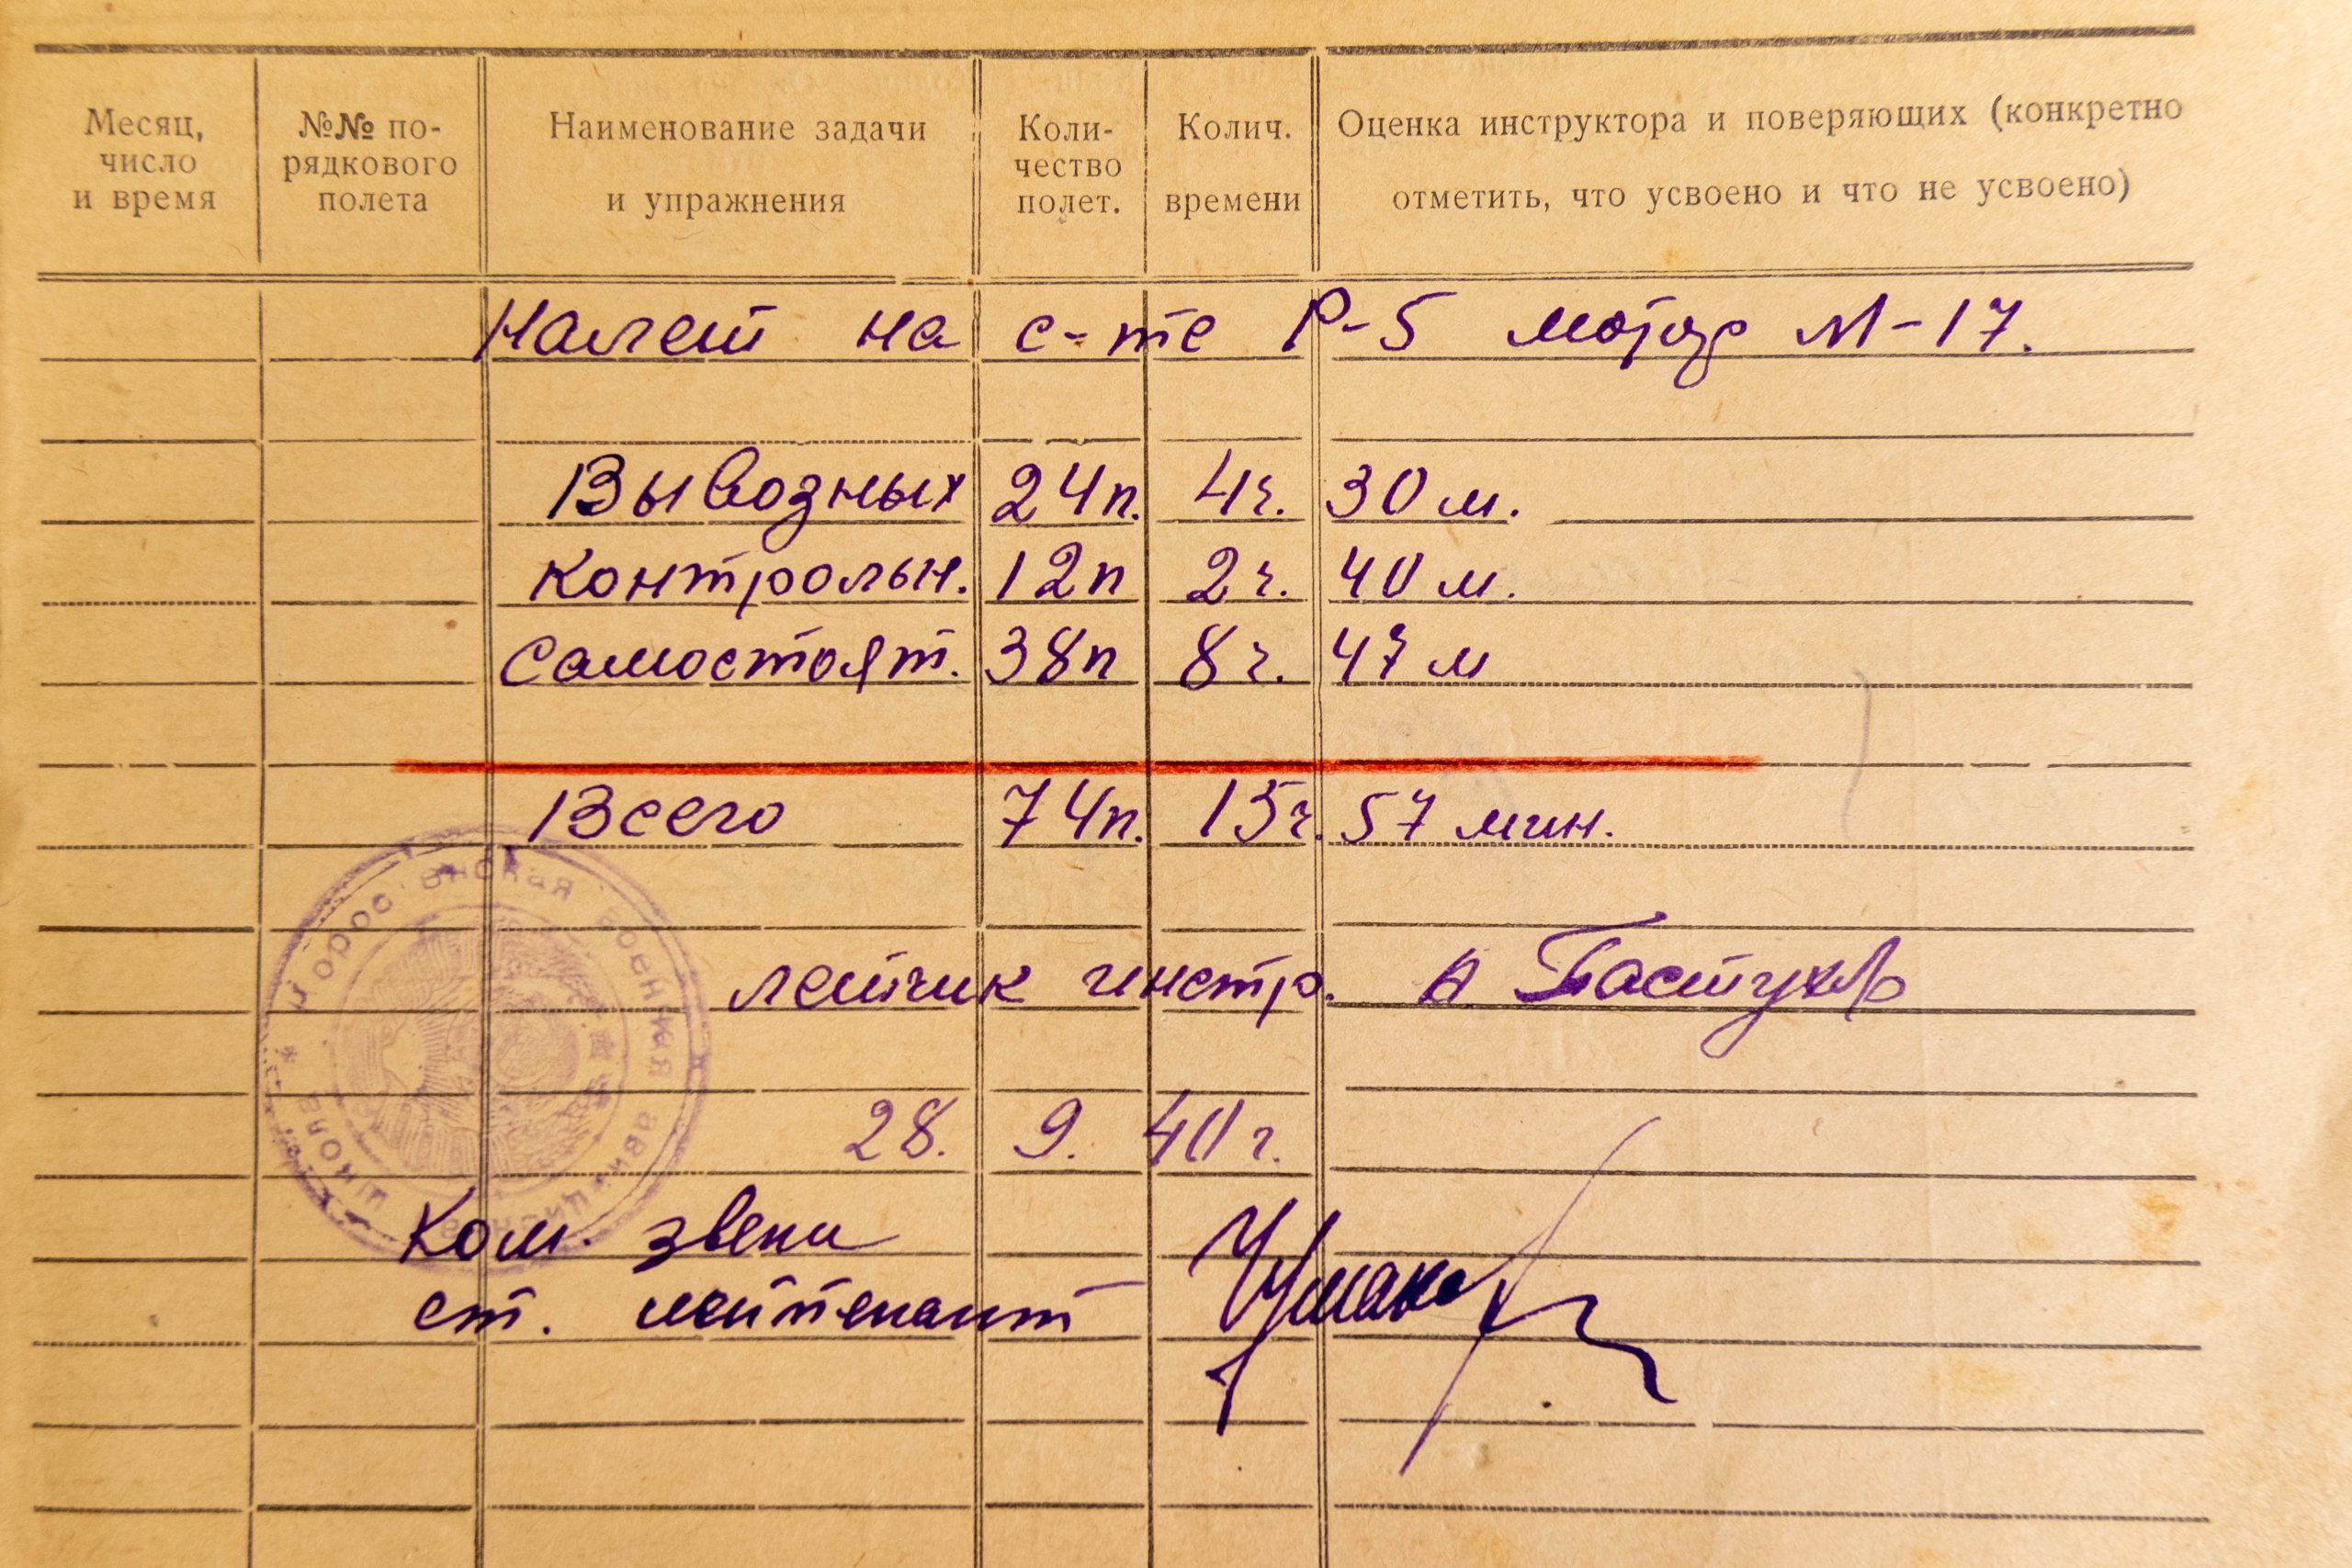 Месяц,
число
и время
№№ по-
рядкового
полета
Наименование задачи
и упражнения
Коли-
чество
полет.
Колич.
времени
Оценка инструктора и поверяющих (конкретно
отметить, что усвоено и что не усвоено)
Налет на с-те Р-5 мотор М-17.
Вывозных 24п. 4ч. 30 м.
Контрольн. 12п 2ч. 40 м.
Самостоят. 38п 8ч. 47 м
Всего 74п. 15ч. 57 мин.
летчик инстр. А
28. 9. 40 г.
Ком. звена
ст. лейтенант
военная авиационная школа